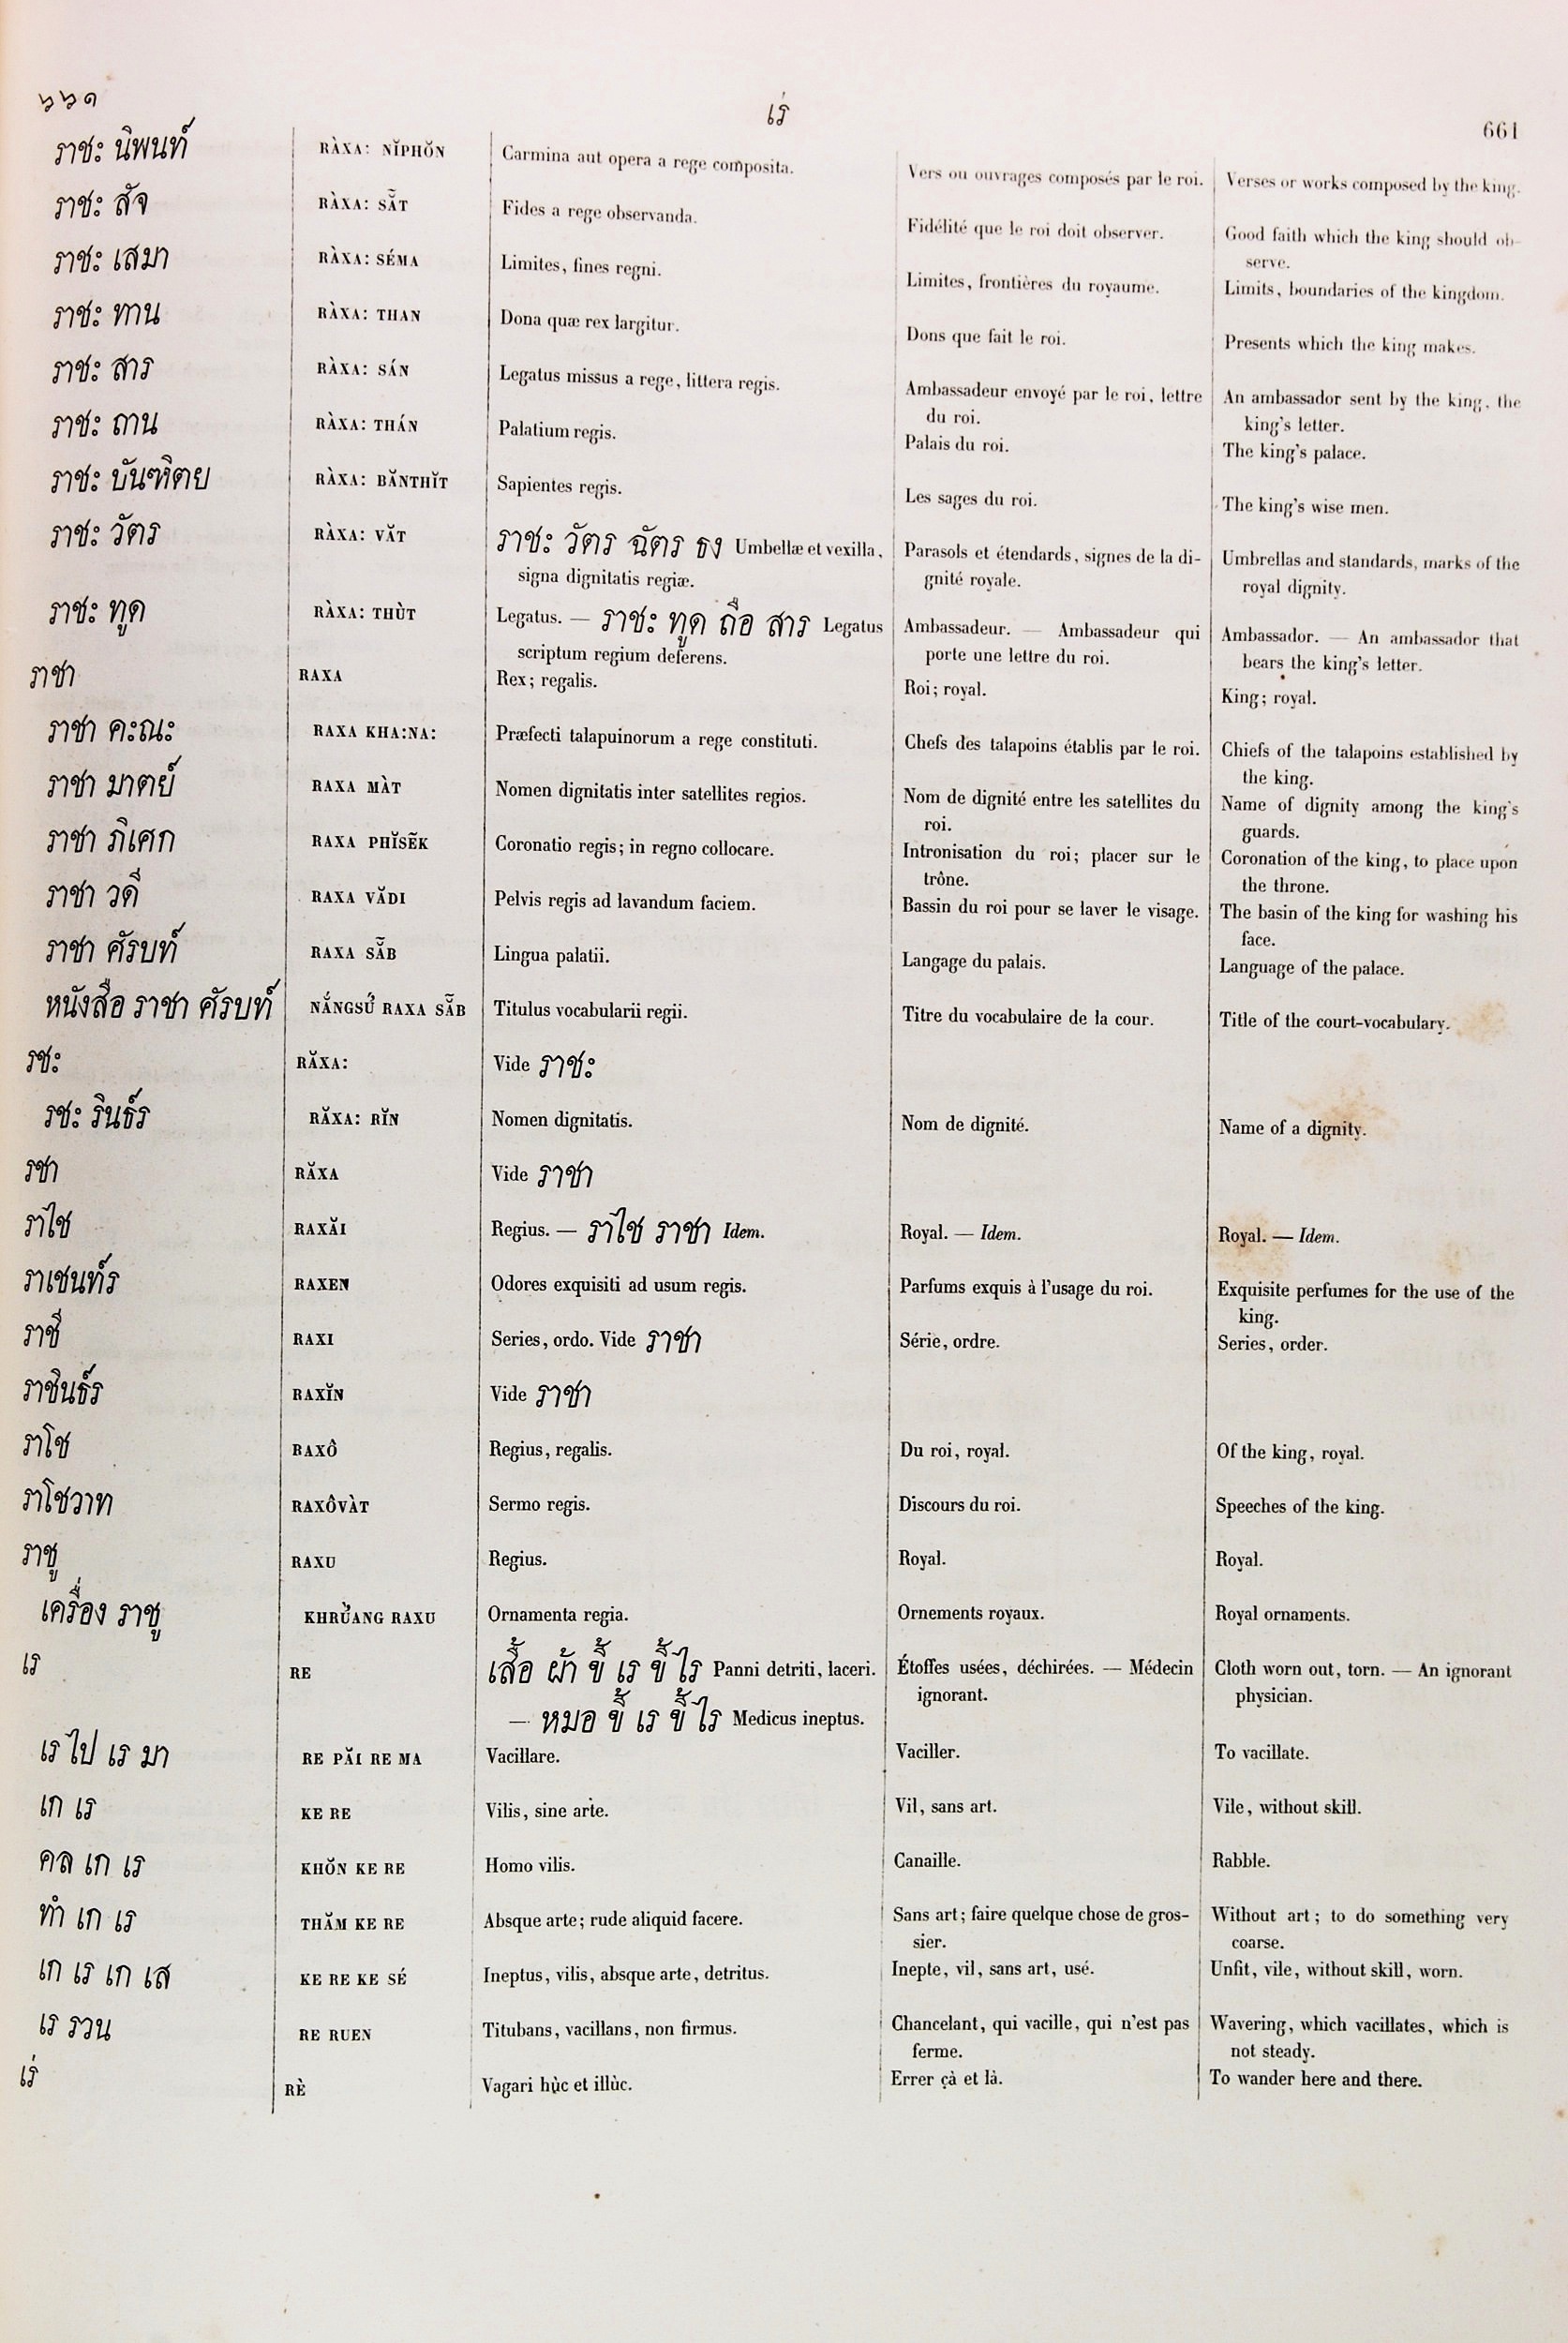 ๖๖๑ เร่ 661
ราชะ นิพนท์ RÀXA: NĬPHŎN Carmina aut opera a rege composita. Vers ou ouvrages composés par le roi. Verses or works composed by the king.
ราชะ สัจ RÀXA: SẴT Fides a rege observanda. Fidélité que le roi doit observer. Good faith which the king should ob-
serve.
ราชะ เสมา RÀXA: SÉMA Limites, fines regni. Limites, frontières du royaume. Limits, boundaries of the kingdom.
ราชะ ทาน RÀXA: THAN Dona quæ rex largitur. Dons que fait le roi. Presents which the king makes.
ราชะ สาร RÀXA: SÁN Legatus missus a rege, littera regis. Ambassadeur envoyé par le roi, lettre An ambassador sent by the king, the
du roi. king's letter.
ราชะ ถาน RÀXA: THÁN Palatium regis. Palais du roi. The king's palace.
ราชะ บันฑิตย RÀXA: BĂNTHĬT Sapientes regis. Les sages du roi. The king's wise men.
ราชะ วัตร RÀXA: VĂT ราชะ วัตร ฉัตร ธง Umbellæ et vexilla, Parasols et étendards, signes de la di- Umbrellas and standards, marks of the
signa dignitatis regiæ. gnité royale. royal dignity.
ราชะ ทูด RÀXA: THÙT Legatus. — ราชะ ทูด ถือ สาร Legatus Ambassadeur. — Ambassadeur qui Ambassador. — An ambassador that
scriptum regium deferens. porte une lettre du roi. bears the king's letter.
ราชา RAXA Rex; regalis. Roi; royal. King; royal.
ราชา คะณะ RAXA KHA:NA: Præfecti talapuinorum a rege constituti. Chefs des talapoins établis par le roi. Chiefs of the talapoins established by
the king.
ราชา มาตย์ RAXA MÀT Nomen dignitatis inter satellites regios. Nom de dignité entre les satellites du Name of dignity among the king's
roi. guards.
ราชา ภิเศก RAXA PHĬSẼK Coronatio regis; in regno collocare. Intronisation du roi; placer sur le Coronation of the king, to place upon
trône. the throne.
ราชา วดี RAXA VĂDI Pelvis regis ad lavandum faciem. Bassin du roi pour se laver le visage. The basin of the king for washing his
face.
ราชา ศัรบท์ RAXA SẴB Lingua palatii. Langage du palais. Language of the palace.
หนังสือ ราชา ศัรบท์ NẮNGSỨ RAXA SẴB Titulus vocabularii regii. Titre du vocabulaire de la cour. Title of the court-vocabulary.
รชะ RĂXA: Vide ราชะ
รชะ รินธ์ร RĂXA: RĬN Nomen dignitatis. Nom de dignité. Name of a dignity.
รชา RĂXA Vide ราชา
ราไช RAXĂI Regius. — ราไช ราชา Idem. Royal. — Idem. Royal. — Idem.
ราเชนท์ร RAXEN Odores exquisiti ad usum regis. Parfums exquis à l'usage du roi. Exquisite perfumes for the use of the
king.
ราชี RAXI Series, ordo. Vide ราชา Série, ordre. Series, order.
ราชินธ์ร RAXĬN Vide ราชา
ราโช RAXÔ Regius, regalis. Du roi, royal. Of the king, royal.
ราโชวาท RAXÔVÀT Sermo regis. Discours du roi. Speeches of the king.
ราชู RAXU Regius. Royal. Royal.
เครื่อง ราชู KHRU̇̀ANG RAXU Ornamenta regia. Ornements royaux. Royal ornaments.
เร RE เสื้อ ผ้า ขี้ เร ขี้ ไร Panni detriti, laceri. Étoffes usées, déchirées. — Médecin Cloth worn out, torn. — An ignorant
ignorant. physician.
— หมอ ขี้ เร ขี้ ไร Medicus ineptus.
เร ไป เร มา RE PĂI RE MA Vacillare. Vaciller. To vacillate.
เก เร KE RE Vilis, sine arte. Vil, sans art. Vile, without skill.
คล เก เร KHŎN KE RE Homo vilis. Canaille. Rabble.
ทำ เก เร THĂM KE RE Absque arte; rude aliquid facere. Sans art; faire quelque chose de gros- Without art; to do something very
sier. coarse.
เก เร เก เส KE RE KE SÉ Ineptus, vilis, absque arte, detritus. Inepte, vil, sans art, usé. Unfit, vile, without skill, worn.
เร รวน RE RUEN Titubans, vacillans, non firmus. Chancelant, qui vacille, qui n'est pas Wavering, which vacillates, which is
ferme. not steady.
เร่ RÈ Vagari hùc et illùc. Errer çà et là. To wander here and there.